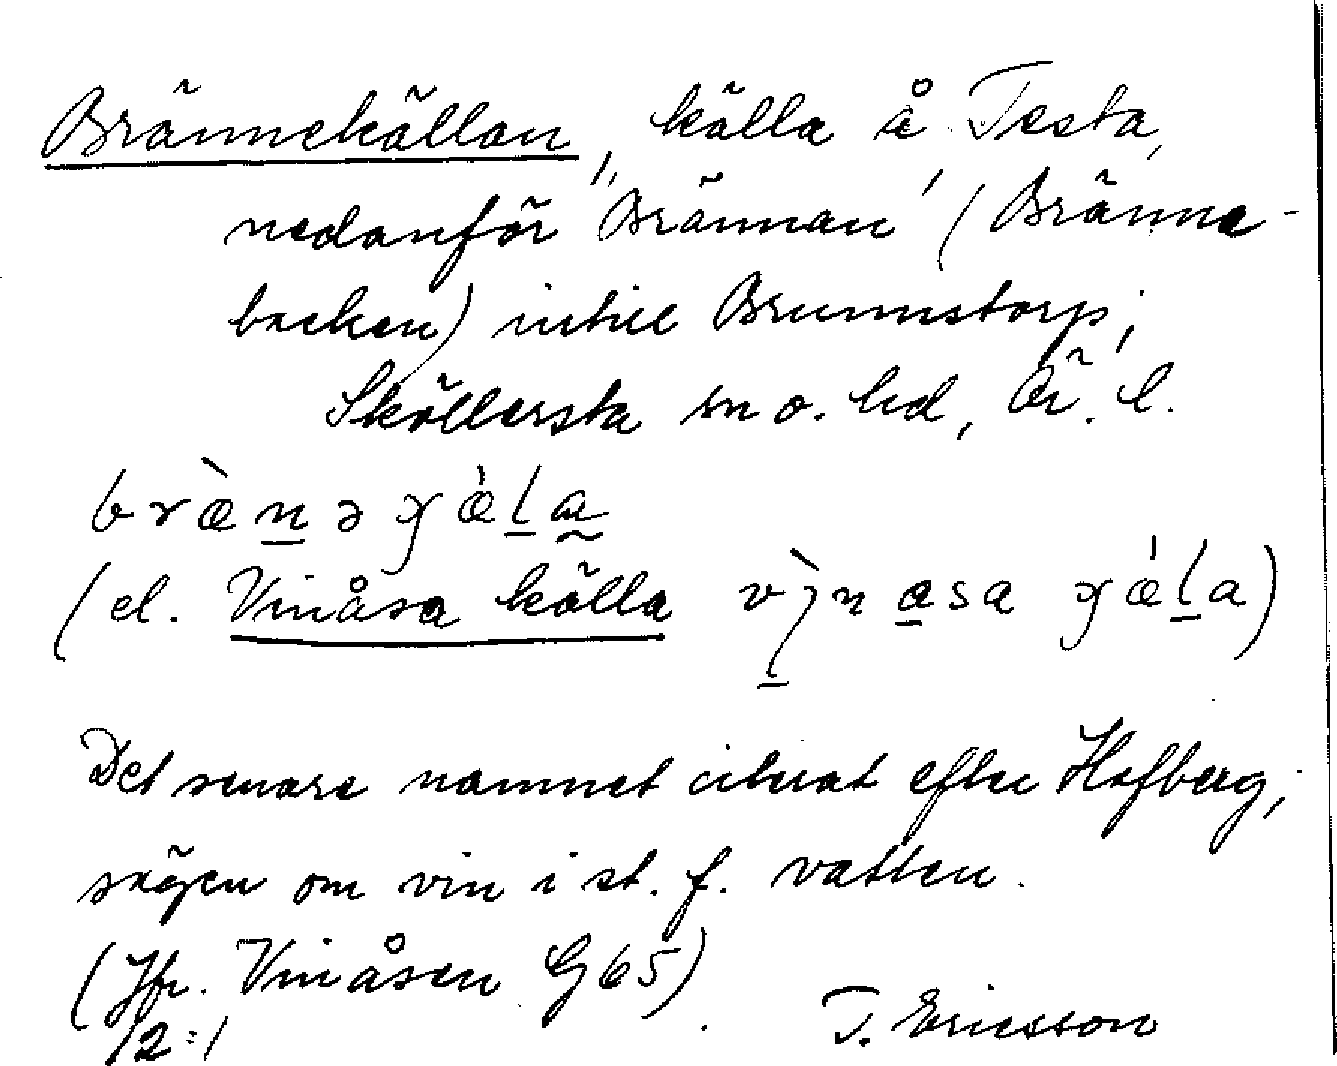 Brännekällan, källa å Testa,
nedanför "Brännan" (Bränne-
backen) intill Brunnstorp,
Sköllersta sn o. hd, Ör. l.
(el. Vinåsa källa
Det senare namnet citerat efter Hofberg,
sägen om vin i st. f. vatten.
(Jfr. Vinåsen G65)
12:1 T. Ericsson